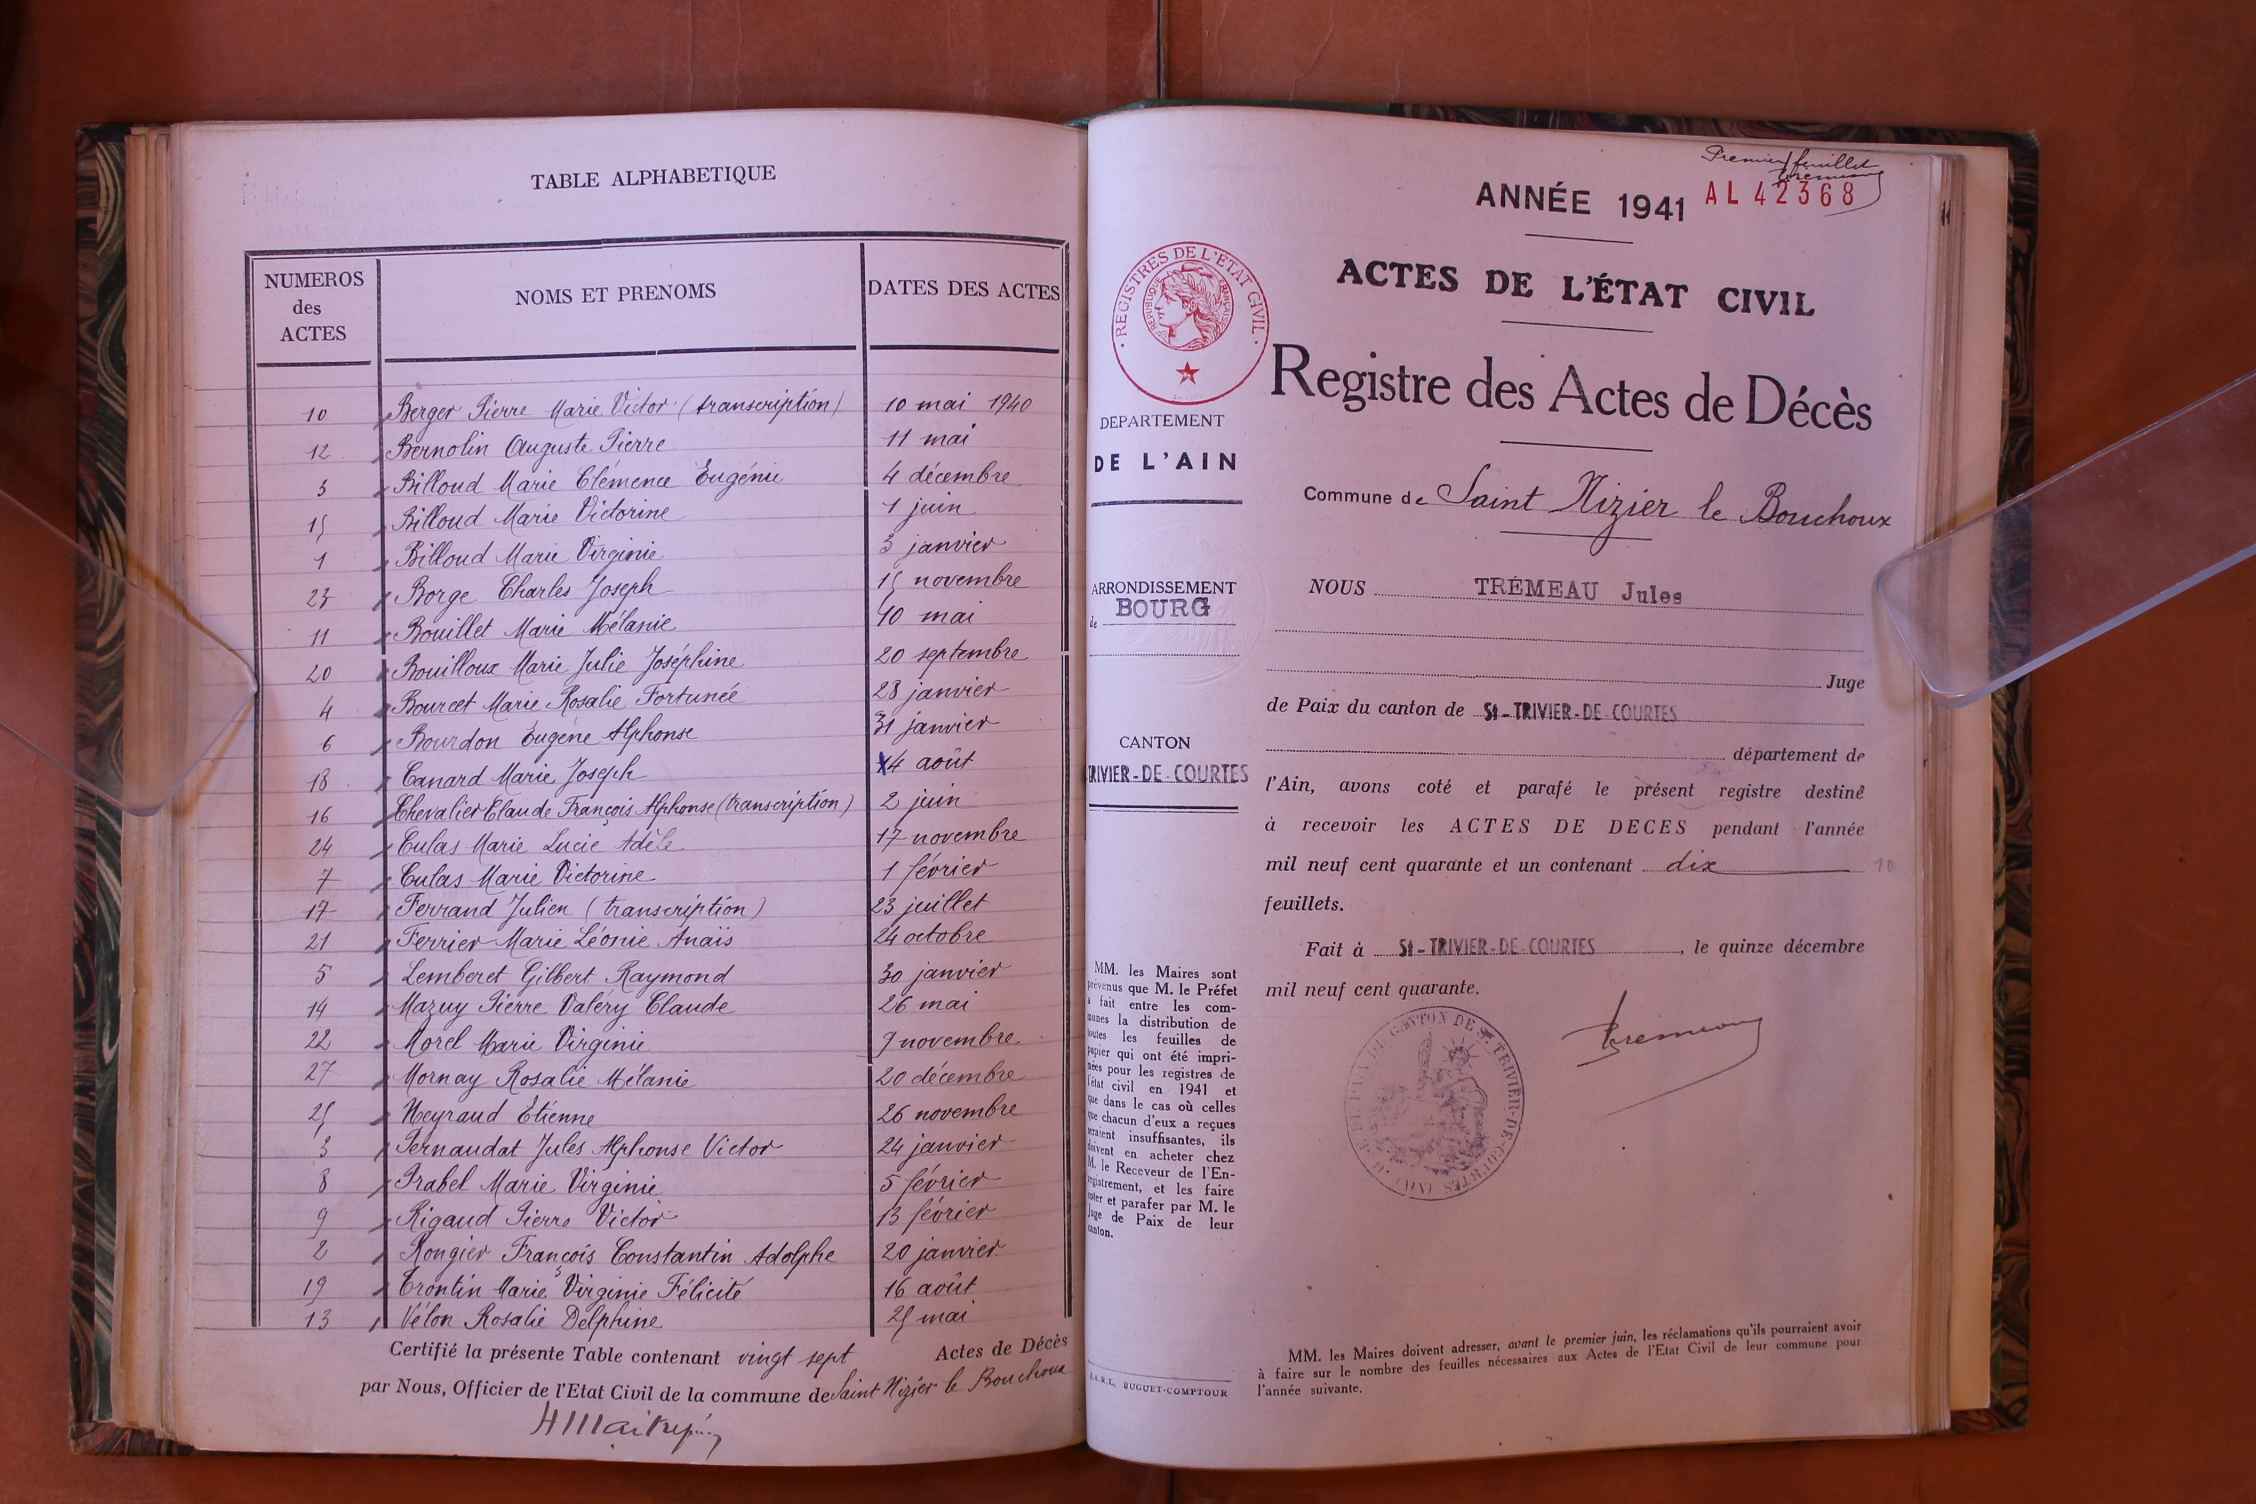 TABLE ALPHABETIQUE
NUMEROS
des
ACTES
NOMS ET PRENOMS
DATES DES ACTES
10 Berger Pierre Marie Victor (transcription) 10 mai 1940
12 Bernolin Auguste Pierre 11 mai
Billoud Marie Clémence Eugénie 4 décembre
15 Billoud Marie Victorine 1 juin
1 Billoud Marie Virginie 3 janvier
23 Borge Charles Joseph 15 novembre
11 Bouillet Marie Mélanie 10 mai
20 Bouilloux Marie Julie Joséphine 20 septembre
4 Bourcet Marie Rosalie Fortunée 28 janvier
6 Bourdon Eugène Alphonse 31 janvier
18 Canard Marie Joseph 4 août
16 Chevalier Claude François Alphonse (transcription) 2 juin
24 Culas Marie Lucie Adèle 17 novembre
7 Culas Marie Victorine 1 février
17 Ferrand Julien (transcription) 23 juillet
21 Ferrier Marie Léonie Anaïs 24 octobre
5 Lemberet Gilbert Raymond 30 janvier
14 Mazuy Pierre Valéry Claude 26 mai
22 Morel Marie Virginie 9 novembre
27 Mornay Rosalie Mélanie 20 décembre
25 Neyraud Etienne 26 novembre
3 Pernaudat Jules Alphonse Victor 24 janvier
8 Prabel Marie Virginie 5 février
9 Rigaud Pierre Victor 13 février
2 Rongier François Constantin Adolphe 20 janvier
19 Trontin Marie Virginie Félicité 16 août
13 Vélon Rosalie Delphine 25 mai
Certifié la présente Table contenant vingt sept Actes de Décès
par Nous, Officier de l'Etat Civil de la commune de Saint Nizier le Bouchoux
Premier feuillet
ANNÉE 1941 AL 42368
ACTES DE L'ÉTAT CIVIL
Registre des Actes de Décès
Commune de Saint Nizier le Bouchoux
REGISTRES DE L'ETAT CIVIL
REPUBLIQUE FRANÇAISE
DEPARTEMENT
DE L'AIN
ARRONDISSEMENT
de BOURG
CANTON
TRIVIER-DE-COURTES
MM. les Maires sont
prévenus que M. le Préfet
a fait entre les com-
munes la distribution de
toutes les feuilles de
papier qui ont été impri-
mées pour les registres de
l'état civil en 1941 et
que dans le cas où celles
que chacun d'eux a reçues
seraient insuffisantes, ils
doivent en acheter chez
M. le Receveur de l'En-
registrement, et les faire
coter et parafer par M. le
Juge de Paix de leur
canton.
BUGUET-COMPTOUR
NOUS TRÉMEAU Jules
Juge
de Paix du canton de St-TRIVIER-DE-COURTES
département de
l'Ain, avons coté et parafé le présent registre destiné
à recevoir les ACTES DE DECES pendant l'année
mil neuf cent quarante et un contenant dix 10
feuillets.
Fait à St-TRIVIER-DE-COURTES, le quinze décembre
mil neuf cent quarante.
MM. les Maires doivent adresser, avant le premier juin, les réclamations qu'ils pourraient avoir
à faire sur le nombre des feuilles nécessaires aux Actes de l'Etat Civil de leur commune pour
l'année suivante.